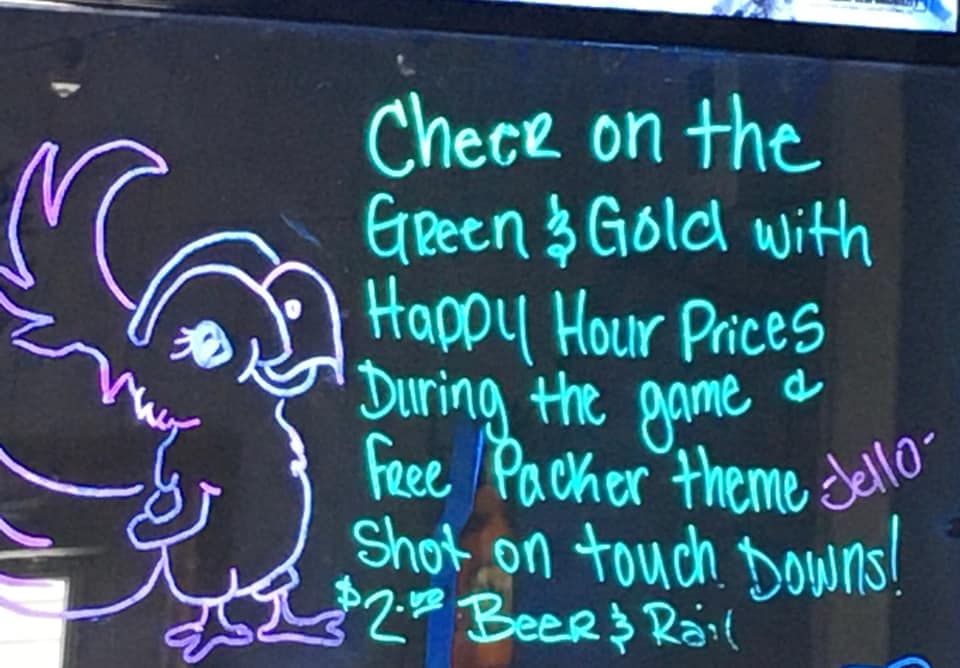 Cheer on the
Green & Gold with
Happy Hour Prices
During the game &
Free Packer theme Jello-
Shot on touch Downs!
$2.00 Beer & Rail